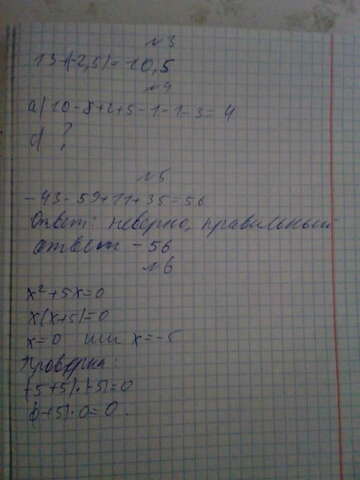 №3
13+(-2,5)=10,5
№4
а) 10-8+2+5-1-1-3=4
?
№5
-43-59+11+35=56
Ответ: неверно, правильный
ответ -56
№6
x²+5x=0
x(x+5)=0
x=0 или x=-5
Проверка:
(-5+5)·(-5)=0
(0+5)·0=0.